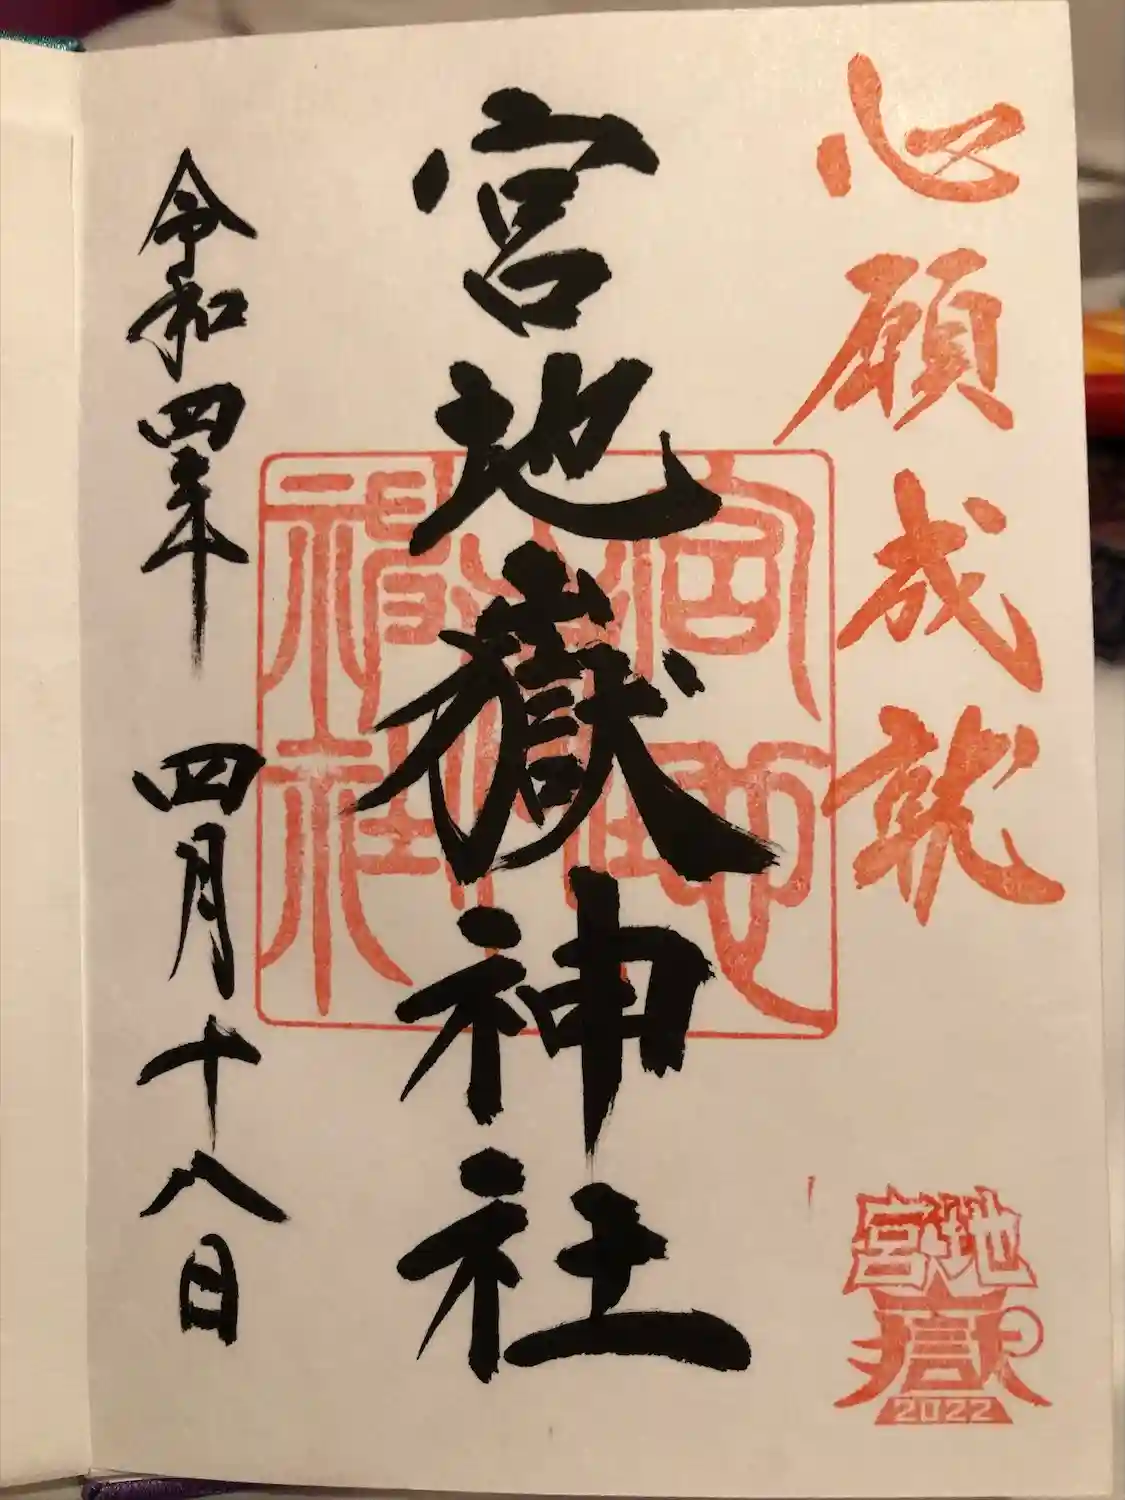 心願成就
宮地嶽神社
宮地嶽神社
令和四年 四月十八日
宮地
嶽
2022